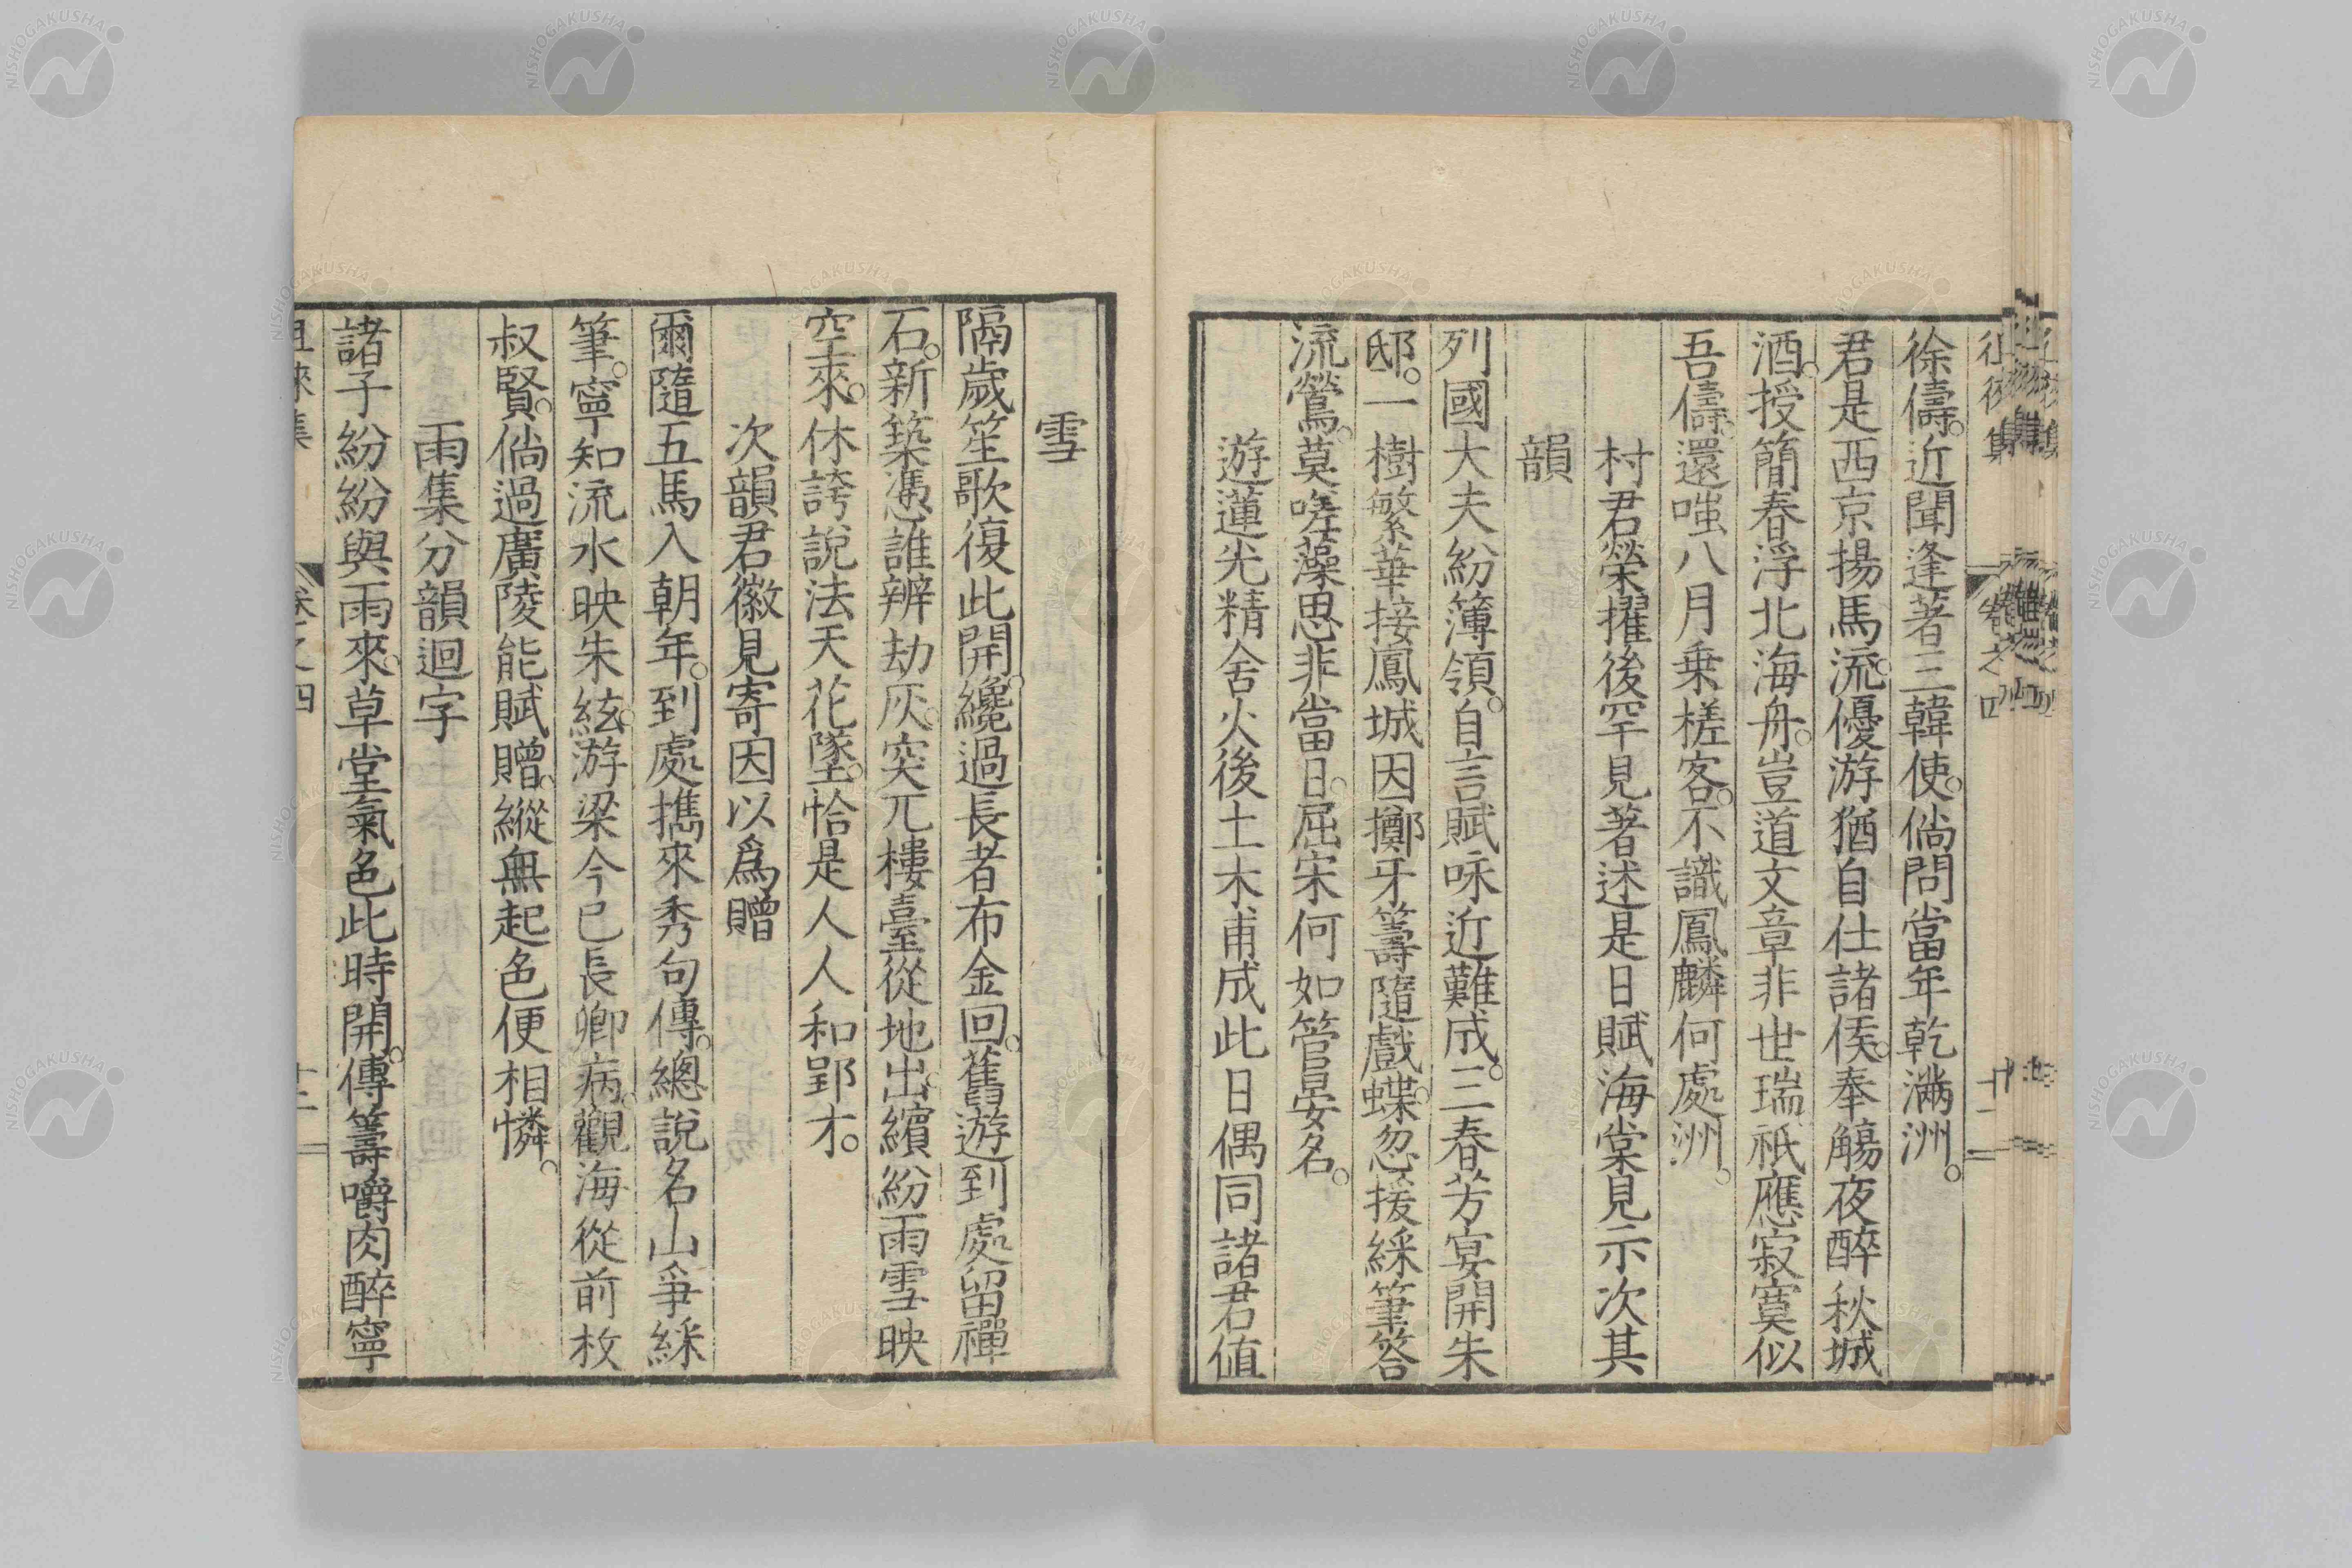 徐儔。近聞逢著三韓使。倘問當年乾滿洲。
君是西京揚馬流。優游猶自仕諸侯。奉觴夜醉秋城
酒。授簡春浮北海舟。豈道文章非世瑞。祇應寂寞似
吾儔。還嗤八月乗槎客。不識鳳麟何處洲。
村君榮擢後罕見著述是日賦海棠見示次其
韻
列國大夫紛簿領。自言賦咏近難成。三春芳宴開朱
邸。一樹繁華接鳳城。因擲牙籌隨戲蝶。忽援綵筆答
流鶯。莫嗟藻思非當日。屈宋何如管晏名。
遊蓮光精舍火後土木甫成此日偶同諸君值
雪
隔歲笙歌復此開。纔過長者布金回。舊遊到處留禪
石。新築憑誰辨劫灰。突兀樓臺從地出。繽紛雨雪映
空來。休誇說法天花墜。恰是人人和郢才。
次韻君徽見寄因以爲贈
爾隨五馬入朝年。到處攜來秀句傳。總說名山爭綵
筆。寧知流水映朱絃。游梁今已長卿病。觀海從前枚
叔賢。倘過廣陵能賦贈。縱無起色便相憐。
雨集分韻迴字
諸子紛紛與雨來。草堂氣色此時開。傳籌嚼肉醉寧
徂徠集
卷之四
十二
NISHOGAKUSHA